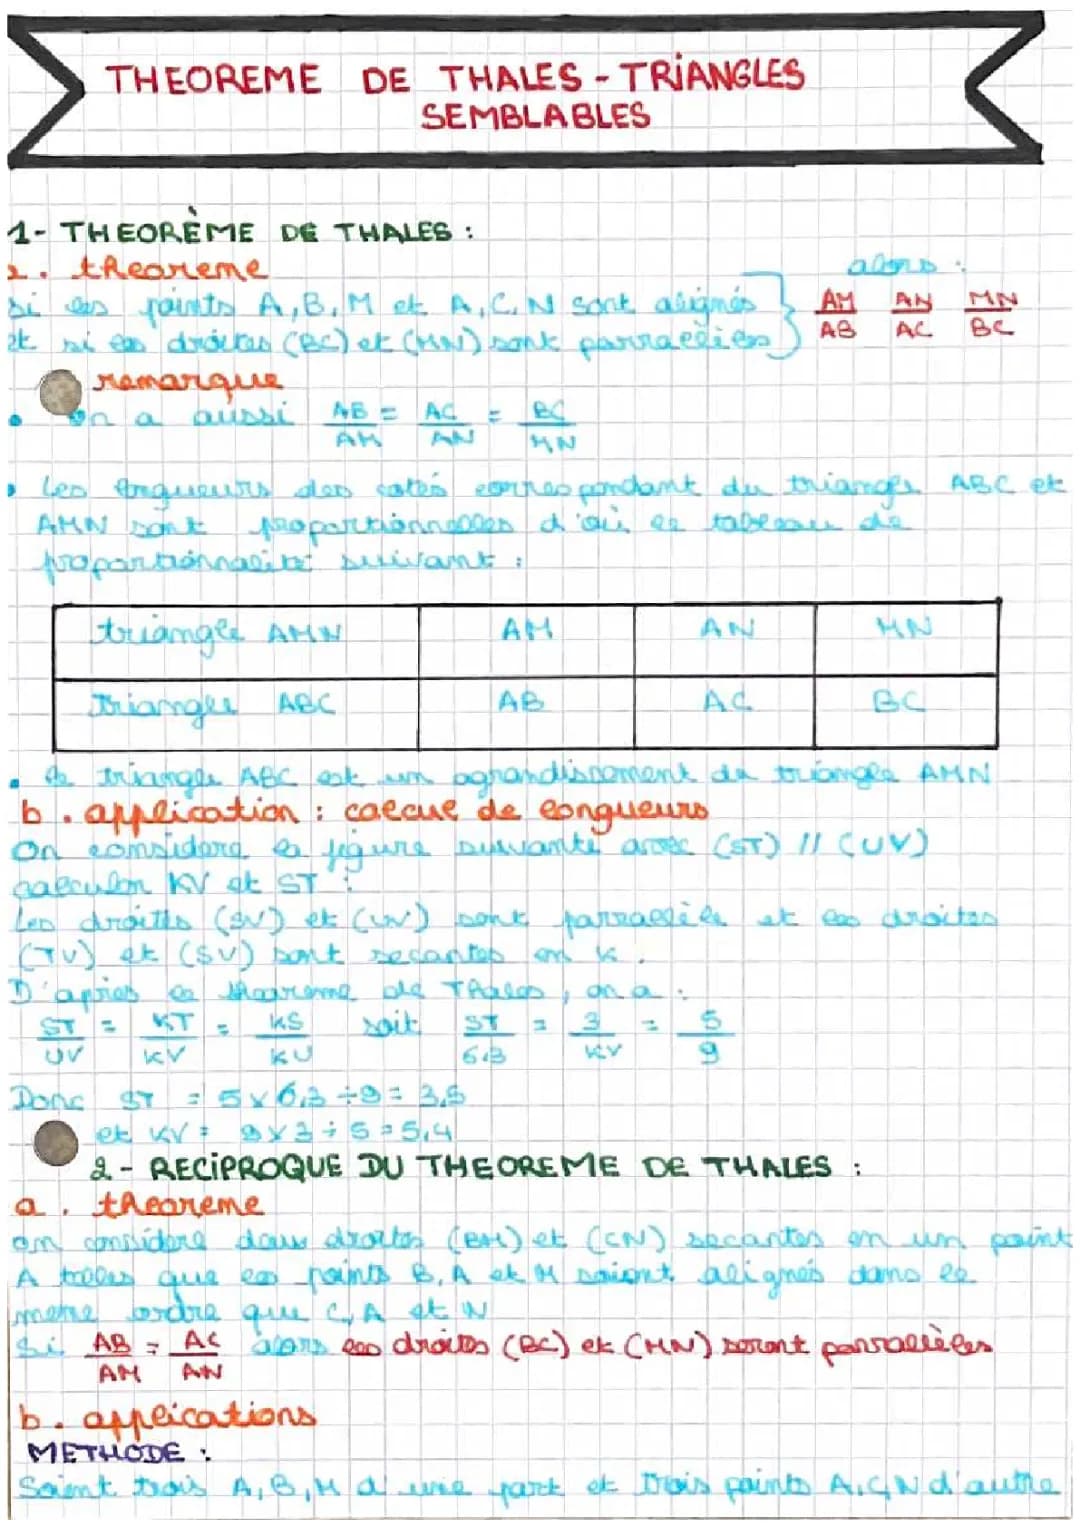 THEOREME DE THALES - TRIANGLES
SEMBLABLES
1- THEORÈME DE THALES :
a. theoreme
si les points A, B, M et A, C, N sont alignés
et si les droites (BC) et (MN) sont parraelles
alors :
AM AN MN
AB AC BC
remarque
• on a aussi AB = AC = BC
AM AN MN
• Les longueurs des cotés correspondant du triangle ABC et
AMN sont proportionnelles d'où le tableau de
proportionnalité suivant :
triangle AMN AM AN MN
Triangle ABC AB AC BC
• le triangle ABC est un agrandissement du triangle AMN
b. application : calcul de longueurs
On considere la figure suivante avec (ST) // (UV)
calculer KV et ST :
Les droites (SV) et (UV) sont parrallèle et les droites
(TV) et (SU) sont secantes en K.
D'apries le theoreme de Thales, on a :
ST = KT = KS soit ST = 3 = 5
UV KV KU 6,3 KV 9
Donc ST = 5 x 6,3 ÷ 9 = 3,5
et KV = 9 x 3 ÷ 5 = 5,4
2 - RECIPROQUE DU THEOREME DE THALES :
a. theoreme
on considere deux droites (BM) et (CN) secantes en un point
A telles que les points B, A et M soient alignés dans le
meme ordre que C, A et N
Si AB = AC alors les droites (BC) et (MN) seront parrallèles
AM AN
b. applications
METHODE :
Soient trois A, B, M d'une part et trois points A, C, N d'autre